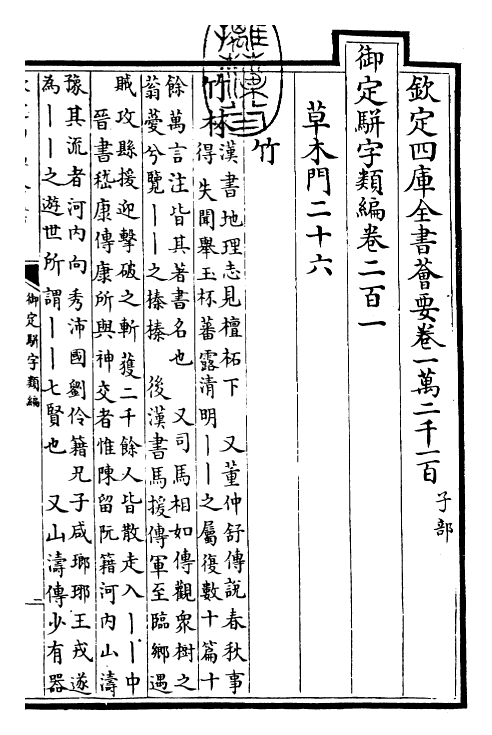 欽定四庫全書薈要卷一萬二千一百 子部
御定駢字類編卷二百一
草木門二十六
竹
竹林
漢書地理志見檀柘下 又董仲舒傳說春秋事
得失聞舉玉杯蕃露清明丨丨之屬復數十篇十
餘萬言注皆其著書名也 又司馬相如傳觀衆樹之
蓊薆兮覽丨丨之榛榛 後漢書馬援傳軍至臨鄉遇
賊攻縣援迎擊破之斬獲二千餘人皆散走入丨丨中
晉書嵇康傳康所與神交者惟陳留阮籍河内山濤
豫其流者河内向秀沛國劉伶籍兄子咸瑯琊王戎遂
為丨丨之遊世所謂丨丨七賢也 又山濤傳少有器
御定駢字類編